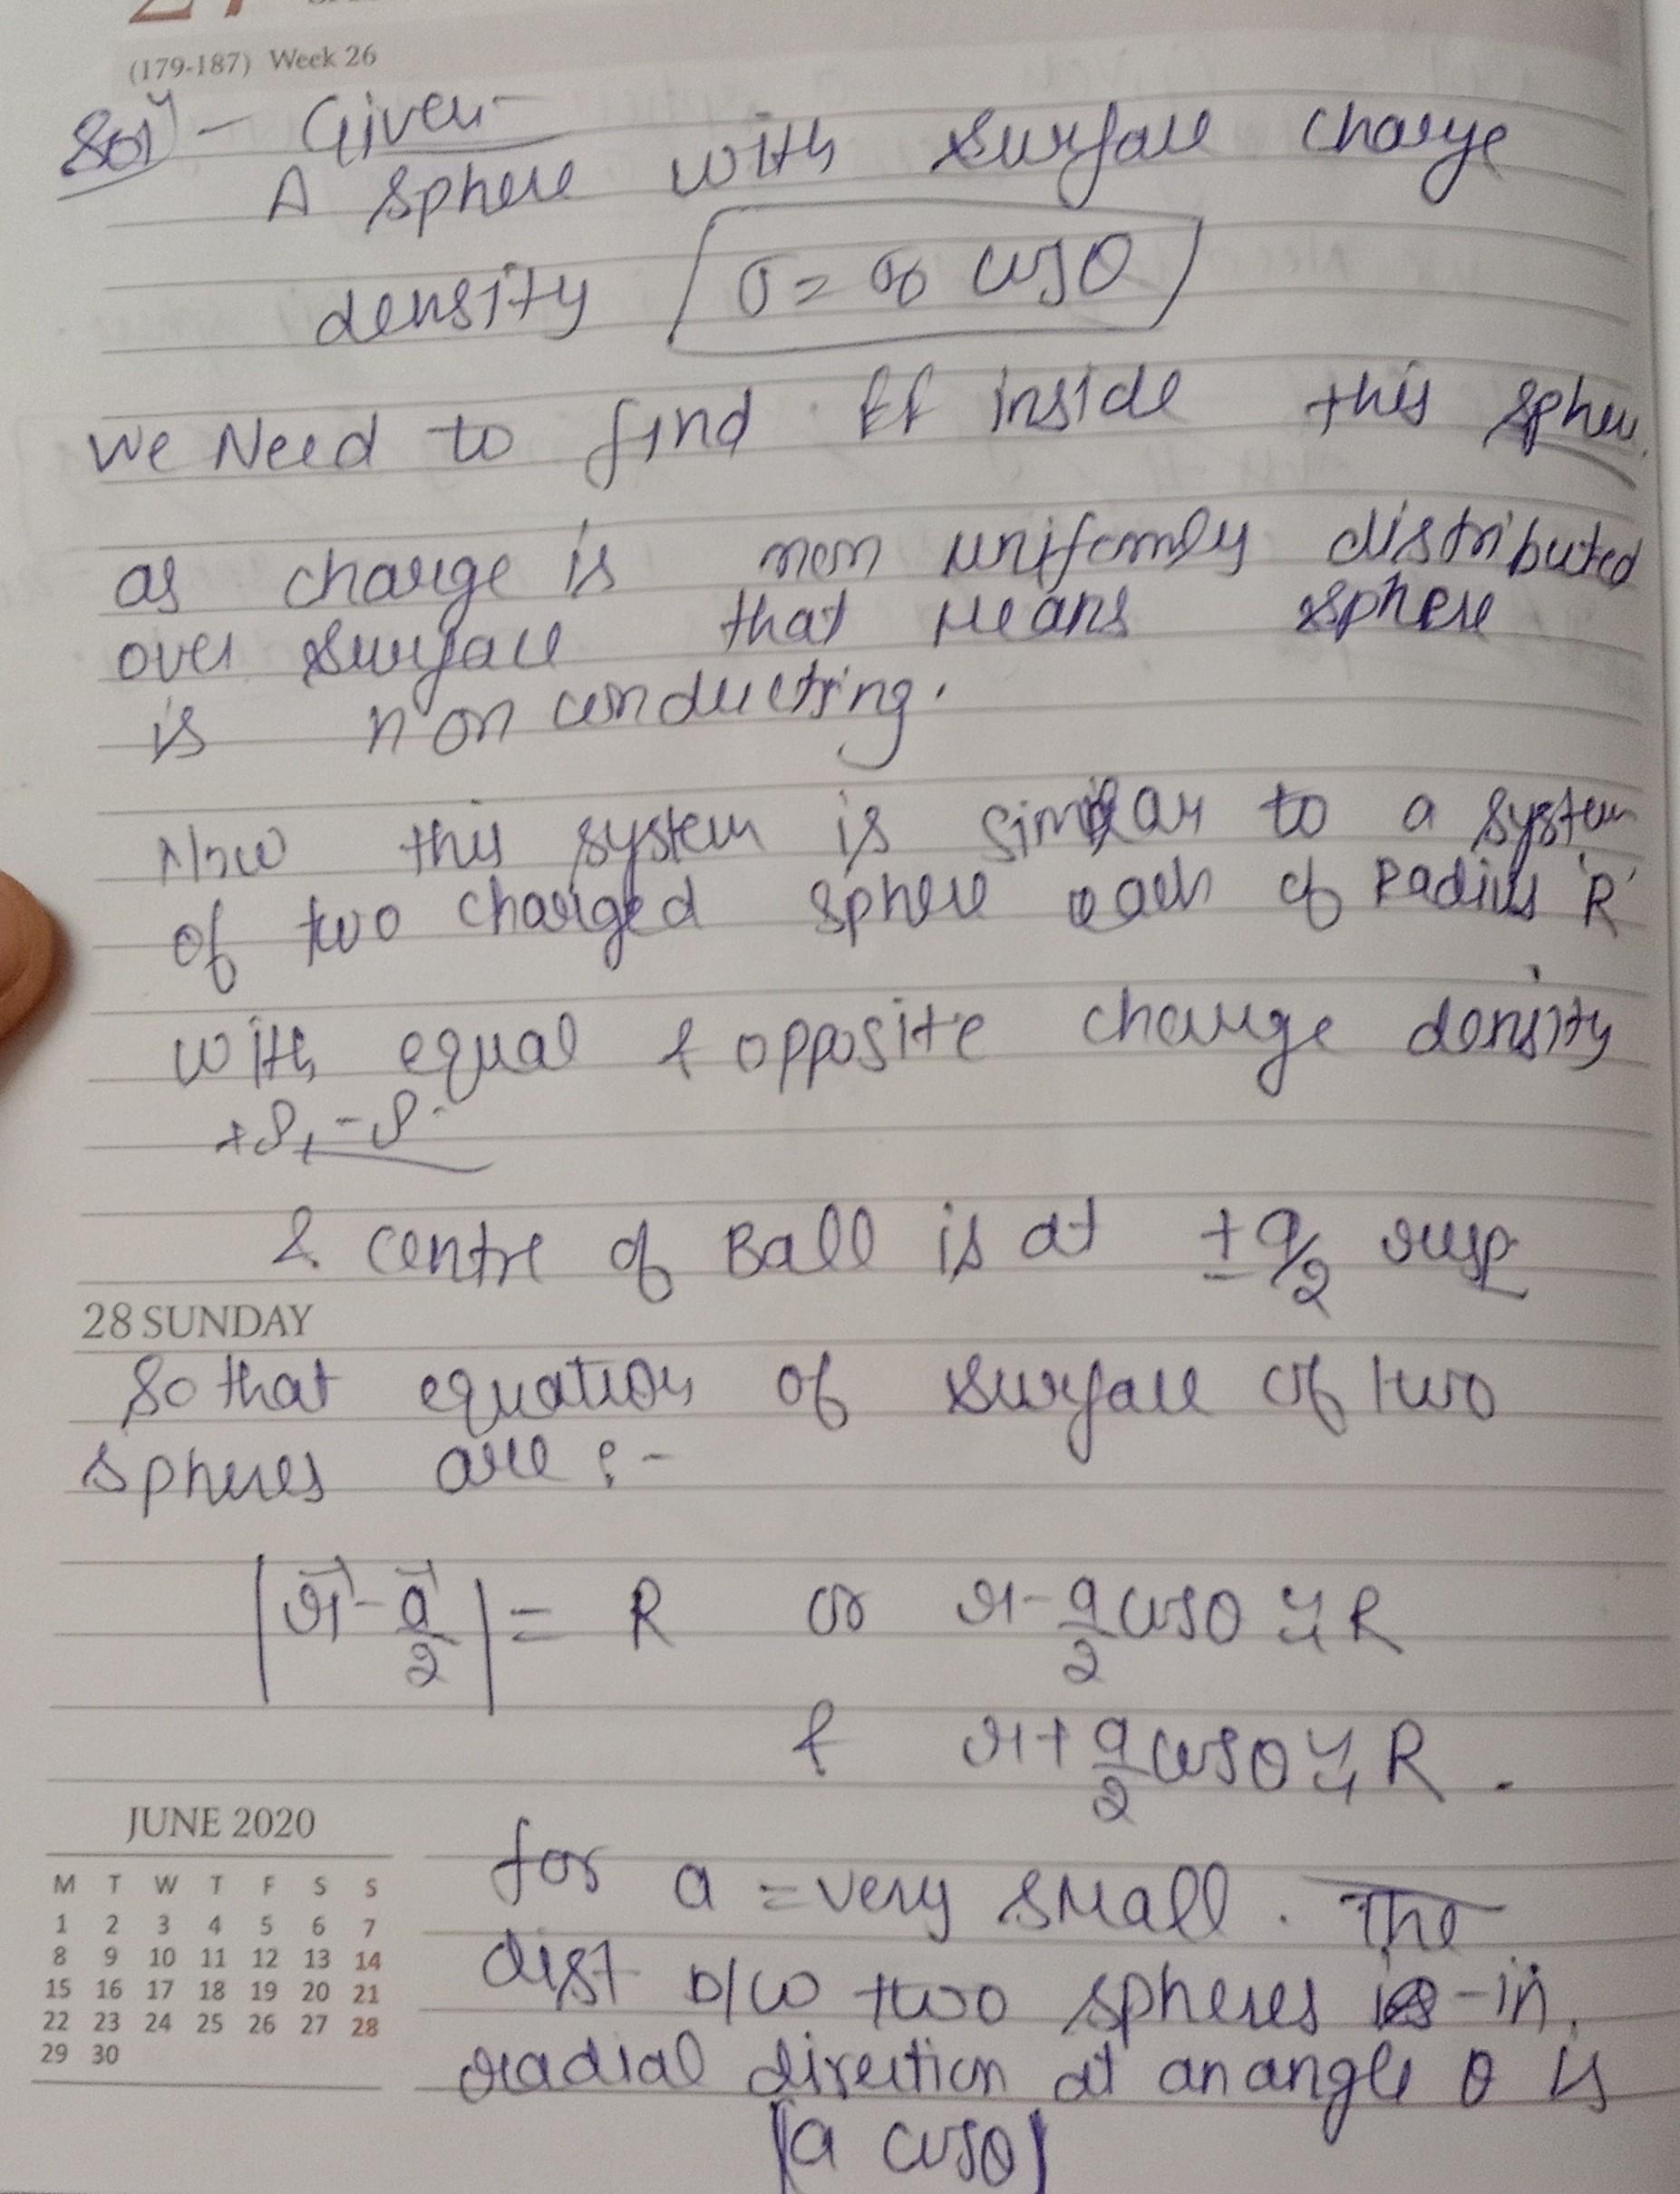 (179-187) Week 26
Solⁿ - Given -
A sphere with surface charge
density σ = σ₀ cosθ
We Need to find EF inside this sphere.
as charge is non uniformly distributed
over surface that Means sphere
is non conducting.
Now this system is similar to a system
of two charged sphere each of Radius 'R'
with equal & opposite charge density
+ρ, -ρ.
& centre of Ball is at ± a/2 resp
28 SUNDAY
So that equation of surface of two
spheres are :-
|r⃗ - a⃗/2| = R or r - a/2 cosθ ≃ R
& r + a/2 cosθ ≃ R.
JUNE 2020
for a = very small. The
dist b/w two spheres in
radial direction at an angle θ is
|a cosθ|
M T W T F S S
1 2 3 4 5 6 7
8 9 10 11 12 13 14
15 16 17 18 19 20 21
22 23 24 25 26 27 28
29 30